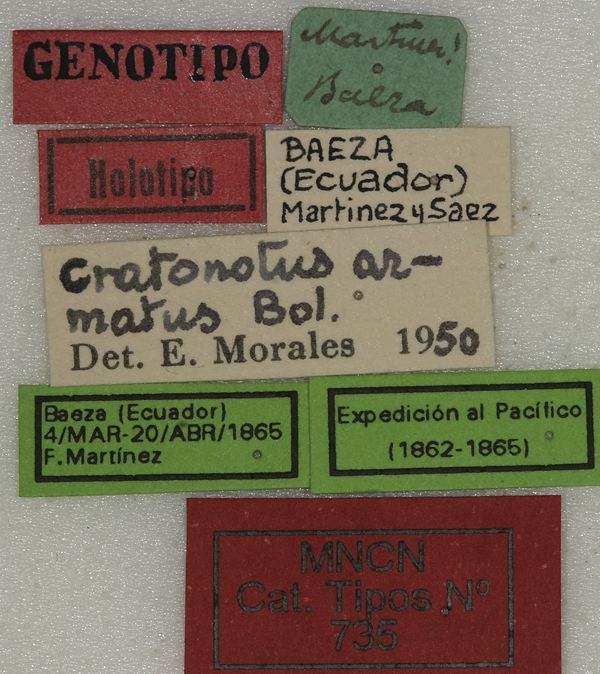 GENOTIPO
Martinez!
Baeza
Holotipo
BAEZA
(Ecuador)
Martinez y Saez
Cratonotus ar-
matus Bol.
Det. E. Morales 1950
Baeza (Ecuador)
4/MAR-20/ABR/1865
F.Martínez
Expedición al Pacífico
(1862-1865)
MNCN
Cat. Tipos Nº
735